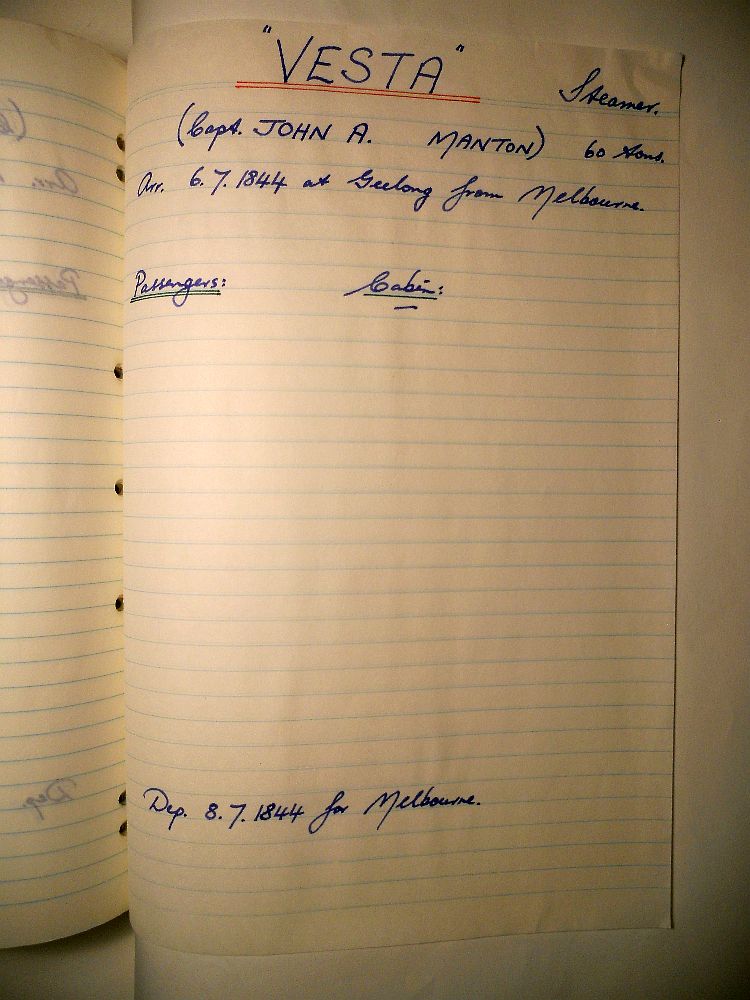 "VESTA"
Steamer.
(Capt. JOHN A. MANTON) 60 tons.
Arr. 6.7.1844 at Geelong from Melbourne.
Passengers: Cabin:
Dep. 8.7.1844 for Melbourne.